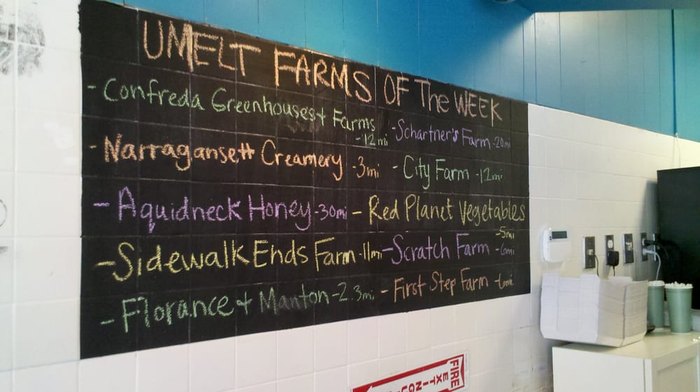 UMELT FARMS OF The WEEK
- Confreda Greenhouses + Farms
- 12 mi
- Narragansett Creamery - 3mi
- Aquidneck Honey - 30mi
- Sidewalk Ends Farm - 11mi
- Florance + Manton - 2.3mi
- Schartner's Farm - 20mi
- City Farm - 12mi
- Red Planet Vegetables
- 5mi
- Scratch Farm - 6mi
- First Step Farm
FIRE